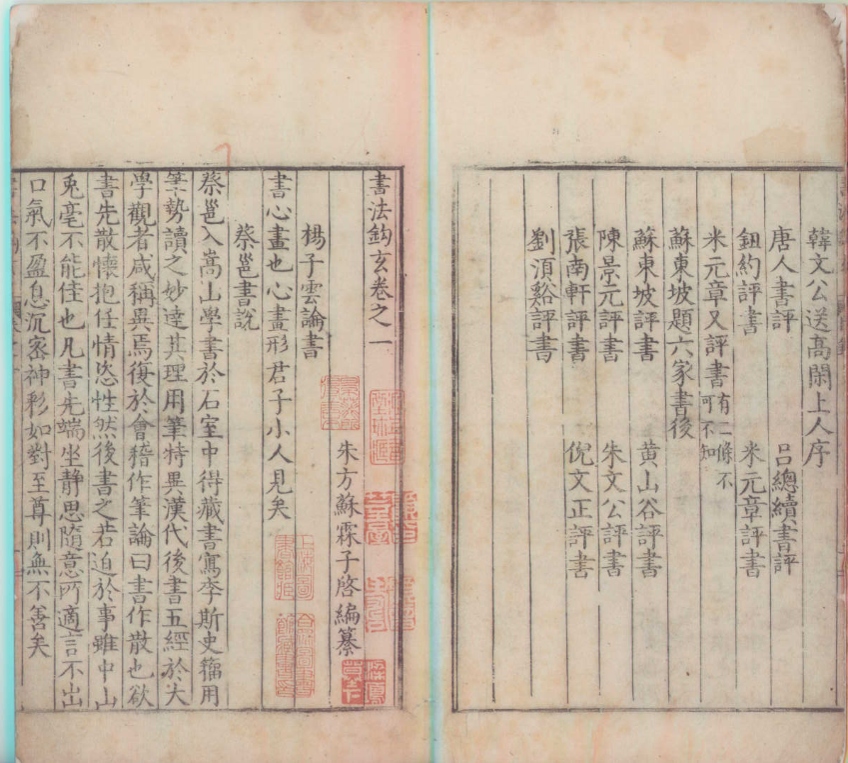 韓文公送高閑上人序
唐人書評　呂總續書評
鈕約評書　米元章評書
米元章又評書有二條不可不知
蘇東坡題六家書後
蘇東坡評書　黃山谷評書
陳景元評書　朱文公評書
張南軒評書　倪文正評書
劉湏谿評書
書法鈎玄卷之一
朱方蘇霖子啓編纂
楊子雲論書
書心畫也心畫形君子小人見矣
蔡邕書說
蔡邕入嵩山學書於石室中得藏書寫李斯史籀用
筆勢讀之妙達其理用筆特異漢代後書五經於大
學觀者咸稱異焉復於會稽作筆論曰書作散也欲
書先散懷抱任情恣性然後書之若迫於事雖中山
兎毫不能佳也凡書先端坐静思隨意所適言不出
口氣不盈息沉宻神彩如對至尊則無不善矣